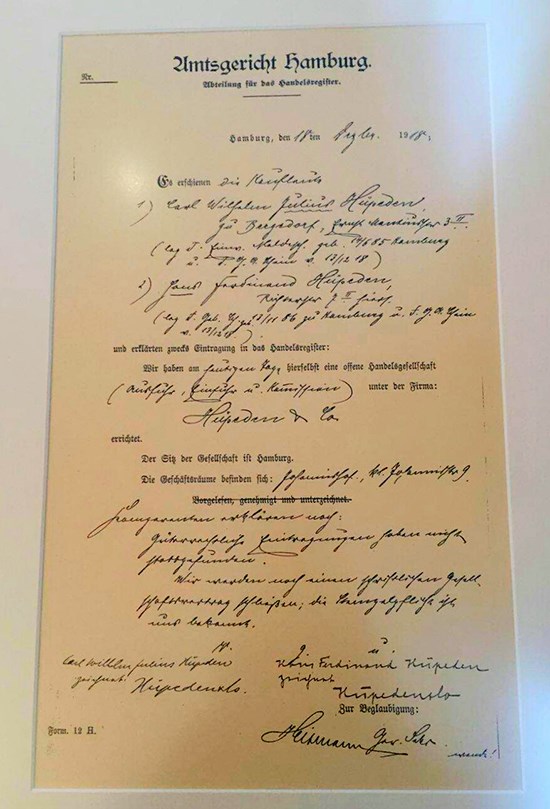 Amtsgericht Hamburg.
Nr.
Abteilung für das Handelsregister.
Hamburg, den 18ten Dezbr. 1918.
Es erschienen die Kaufleute
1) Carl Wilhelm Julius Hüpeden,
zu Bergedorf, Ernst
( geb. 85 Hamburg
u. 13/12 18 )
2) Hans Ferdinand Hüpeden,
( 12/11 86 zu Hamburg u.
v. 13/12 18 )
und erklärten zwecks Eintragung in das Handelsregister:
Wir haben am heutigen Tage hierselbst eine offene Handelsgesellschaft
( Ausfuhr, Einfuhr u. Kommission ) unter der Firma:
Hüpeden & Co
errichtet.
Der Sitz der Gesellschaft ist Hamburg.
Die Geschäftsräume befinden sich: Johannishof, kl. Johannisstr 9.
Vorgelesen, genehmigt und unterzeichnet.
erklären noch:
Güterrechtliche Eintragungen haben nicht
stattgefunden.
Wir werden noch einen schriftlichen Gesell
schaftsvertrag schließen; die Stempelpflicht ist
uns bekannt.
Carl Wilhelm Julius Hüpeden
zeichnet:
Hüpeden & Co.
u.
Hans Ferdinand Hüpeden
zeichnet
Hüpeden & Co
Zur Beglaubigung:
Form. 12 H.
Heitmann Ger. Sekr.
wende!